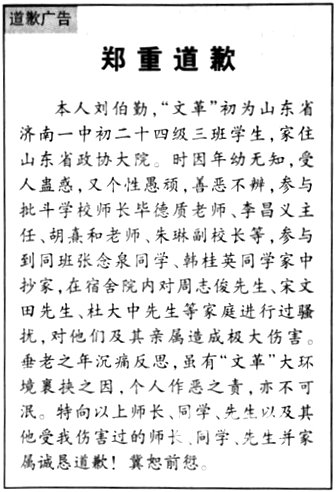 道歉广告
郑重道歉
本人刘伯勤，“文革”初为山东省
济南一中初二十四级三班学生，家住
山东省政协大院。时因年幼无知，受
人蛊惑，又个性愚顽，善恶不辨，参与
批斗学校师长毕德质老师、李昌义主
任、胡熹和老师、朱琳副校长等，参与
到同班张念泉同学、韩桂英同学家中
抄家，在宿舍院内对周志俊先生、宋文
田先生、杜大中先生等家庭进行过骚
扰，对他们及其亲属造成极大伤害。
垂老之年沉痛反思，虽有“文革”大环
境裹挟之因，个人作恶之责，亦不可
泯。特向以上师长、同学、先生以及其
他受我伤害过的师长、同学、先生并家
属诚恳道歉！冀恕前愆。